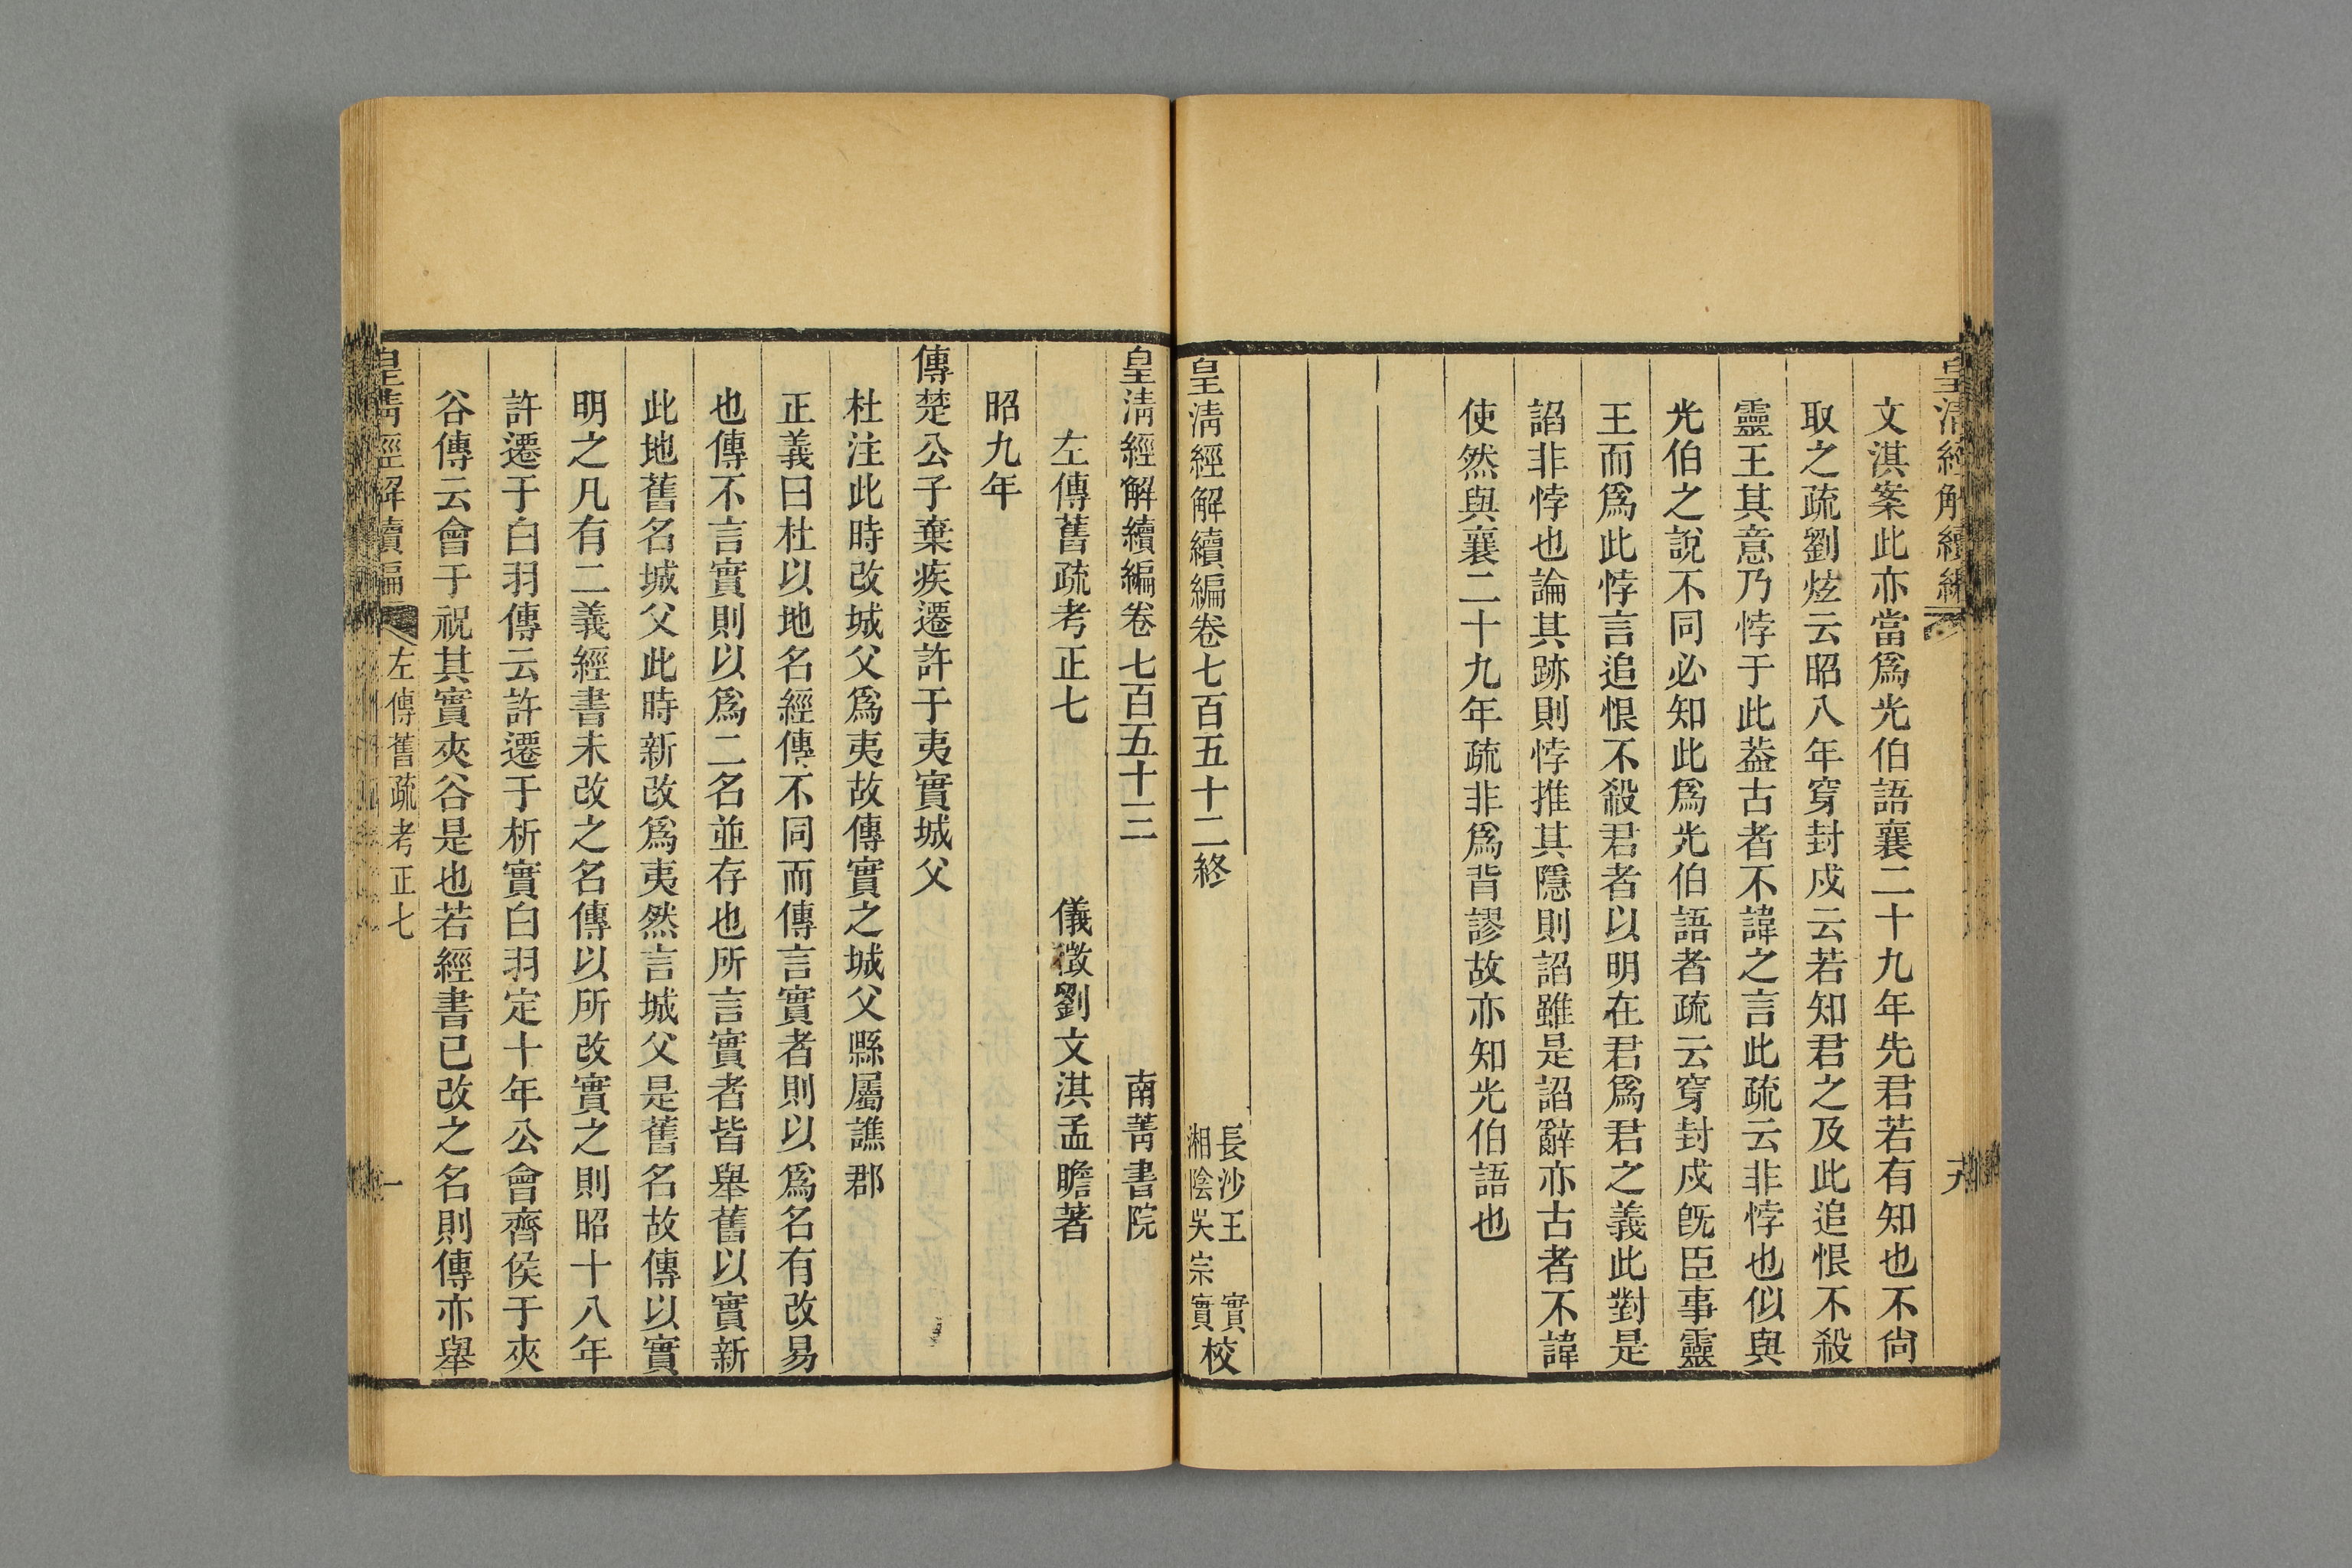 皇清經解續編
文淇案此亦當爲光伯語襄二十九年先君若有知也不尙
取之疏劉炫云昭八年穿封戍云若知君之及此追恨不殺
靈王其意乃悖于此葢古者不諱之言此疏云非悖也似與
光伯之說不同必知此爲光伯語者疏云穿封戍旣臣事靈
王而爲此悖言追恨不殺君者以明在君爲君之義此對是
諂非悖也論其跡則悖推其隱則諂雖是諂辭亦古者不諱
使然與襄二十九年疏非爲背謬故亦知光伯語也
皇清經解續編卷七百五十二終
長沙王 實
湘陰吳宗實校
皇清經解續編卷七百五十三 南菁書院
左傳舊疏考正七 儀徵劉文淇孟瞻著
昭九年
傳楚公子棄疾遷許于夷實城父
杜注此時改城父爲夷故傳實之城父縣屬譙郡
正義曰杜以地名經傳不同而傳言實者則以爲名有改易
也傳不言實則以爲二名並存也所言實者皆舉舊以實新
此地舊名城父此時新改爲夷然言城父是舊名故傳以實
明之凡有二義經書未改之名傳以所改實之則昭十八年
許遷于白羽傳云許遷于析實白羽定十年公會齊侯于夾
谷傳云會于祝其實夾谷是也若經書已改之名則傳亦舉
皇清經解續編 左傳舊疏考正七 一